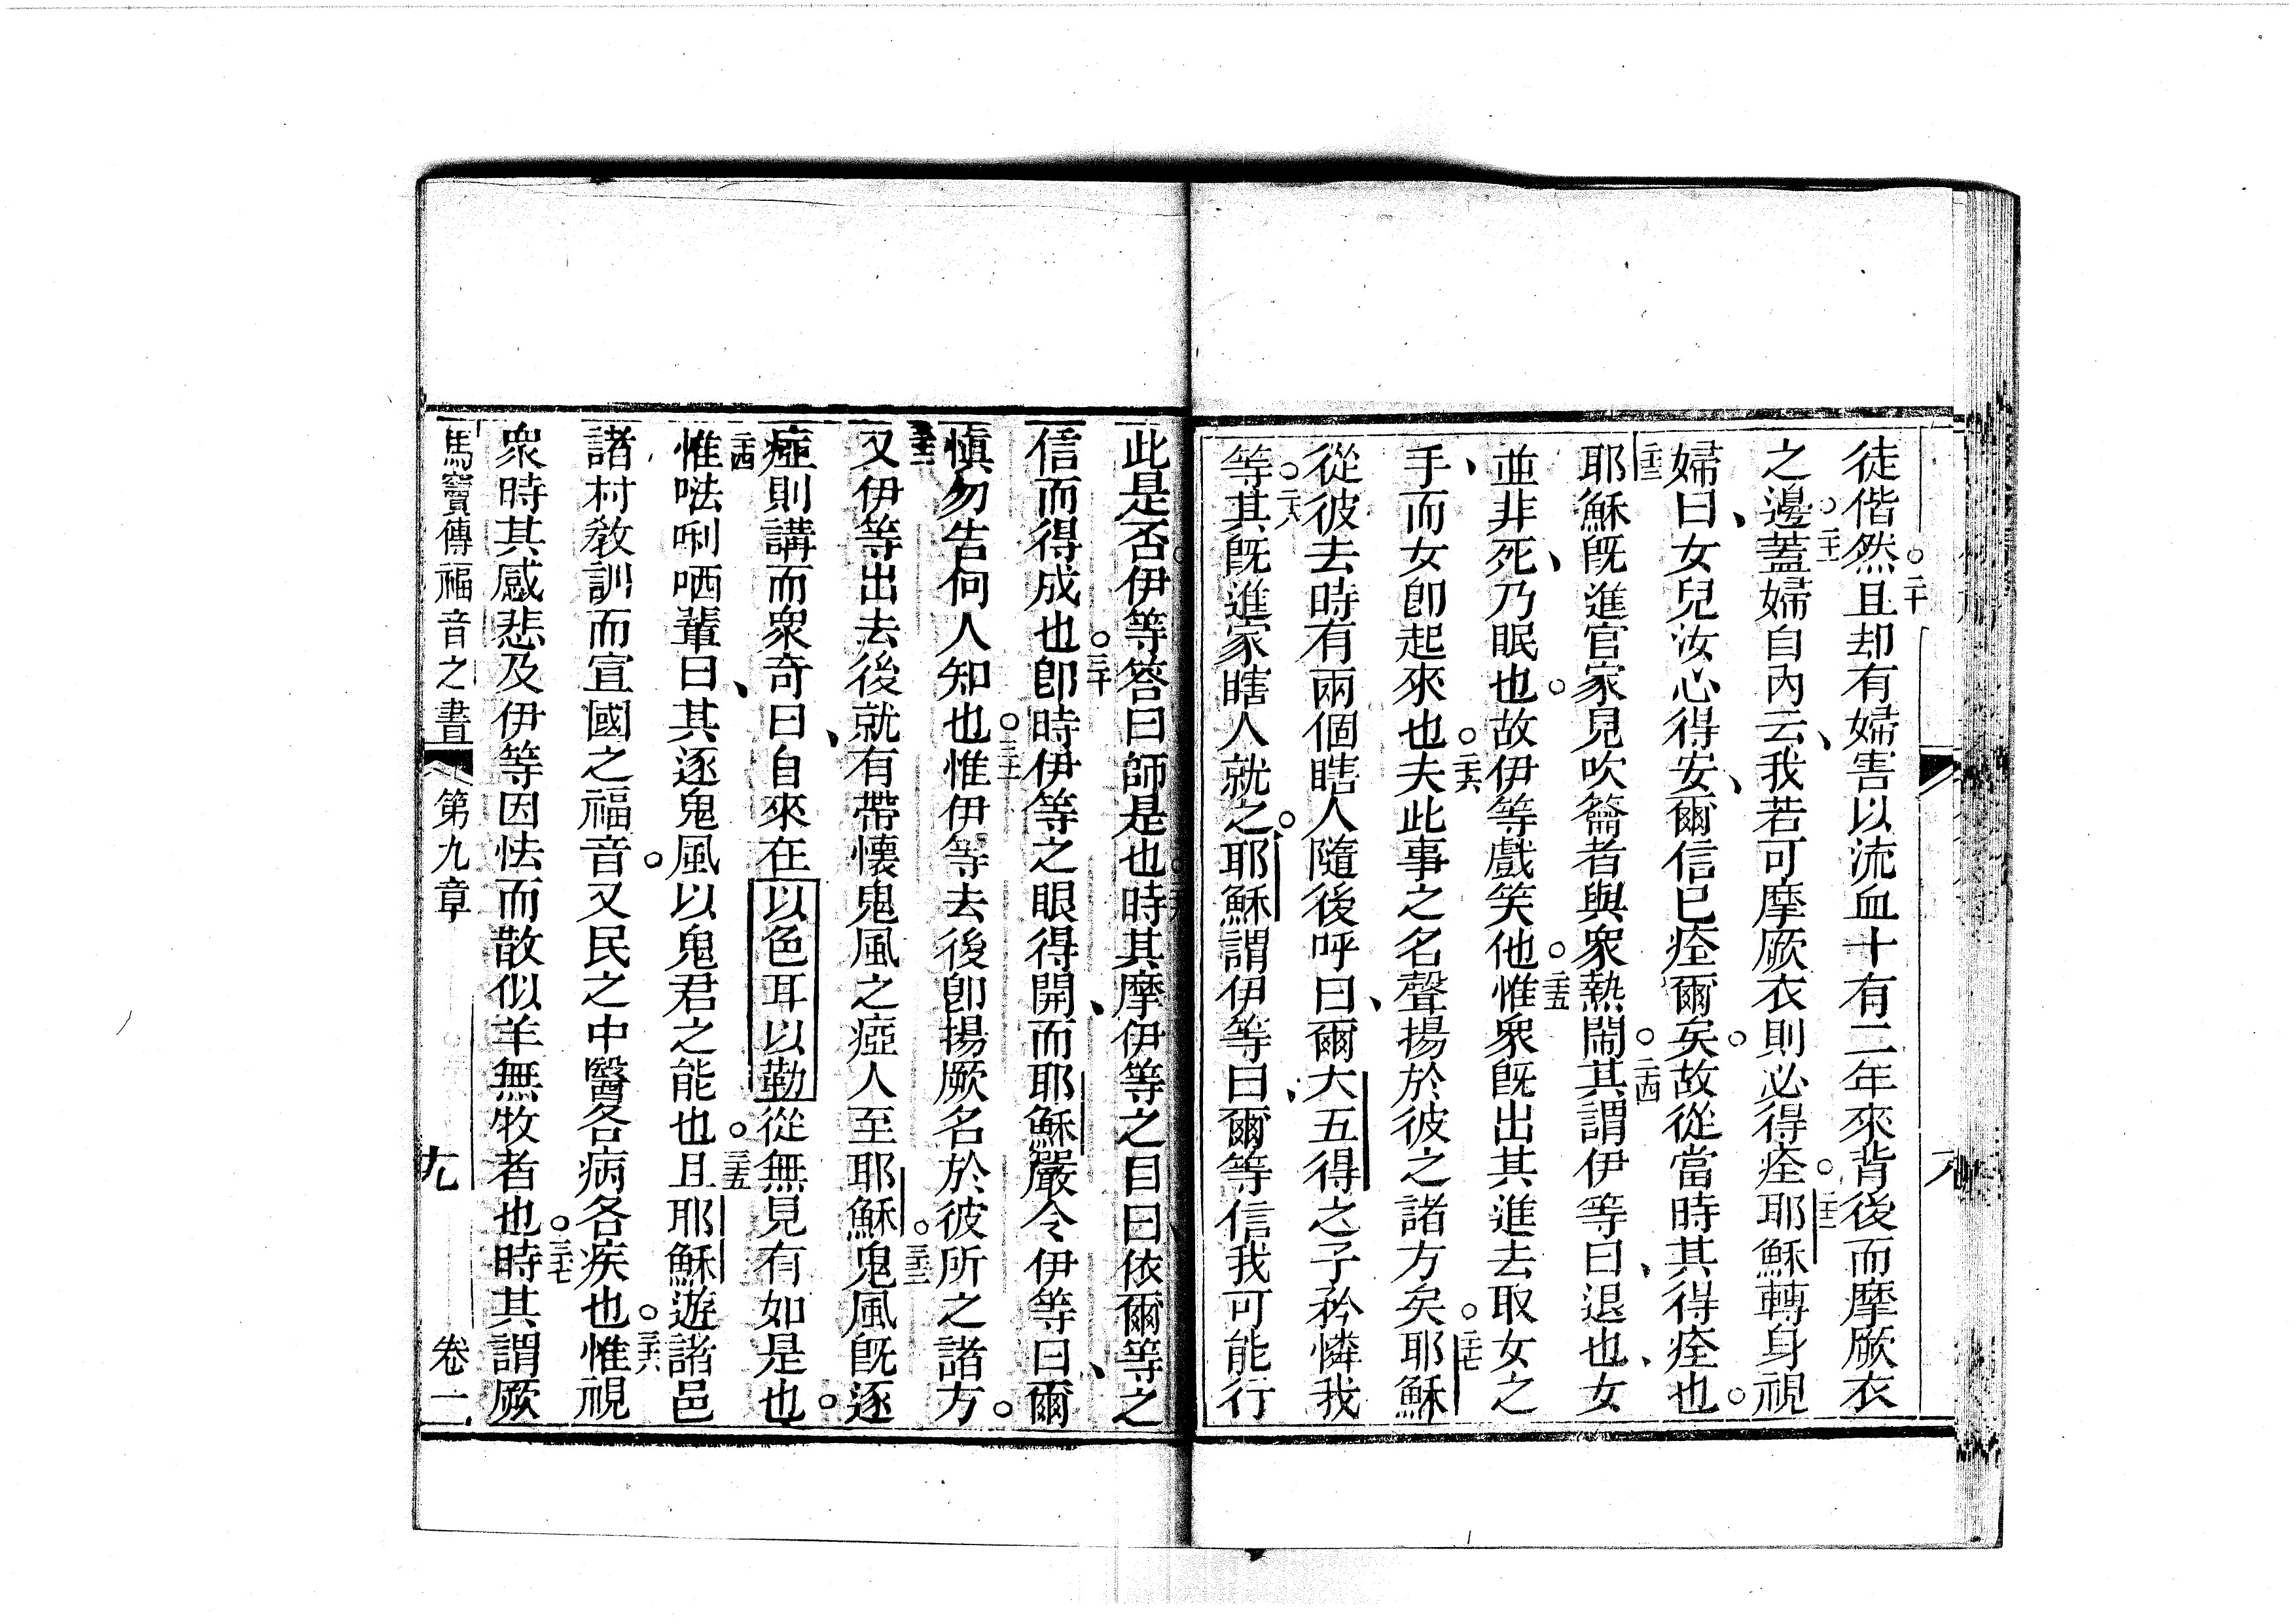 徒偕然。二十且却有婦害以流血十有二年來背後而摩厥衣
之邊。二十一蓋婦自內云、我若可摩厥衣則必得痊。二十二耶穌轉身視
婦曰、女兒汝心得安、爾信已痊爾矣。故從當時其得痊也。
二十三耶穌旣進官家見吹籥者與衆熱鬧。二十四其謂伊等曰、退也、女
並非死、乃眠也。故伊等戲笑他。二十五惟衆旣出其進去取女之
手、而女卽起來也。二十六夫此事之名聲揚於彼之諸方矣。二十七耶穌
從彼去時有兩個瞎人隨後呼曰、爾大五得之子矜憐我
等。二十八其旣進家瞎人就之。耶穌謂伊等曰、爾等信我可能行
此是否。伊等答曰師是也。二十九時其摩伊等之目曰、依爾等之
信而得成也。三十卽時伊等之眼得開、而耶穌嚴令伊等曰、爾
慎勿告何人知也。三十一惟伊等去後卽揚厥名於彼所之諸方。
三十二又伊等出去後就有帶懷鬼風之瘂人至耶穌。三十三鬼風旣逐
瘂則講而衆奇曰、自來在以色耳以勒從無見有如是也。
三十四惟𠵽唎哂輩曰、其逐鬼風以鬼君之能也。三十五且耶穌遊諸邑
諸村敎訓而宣國之福音。又民之中醫各病各疾也。三十六惟視
衆時其感悲及伊等因怯而散似羊無牧者也。三十七時其謂厥
馬竇傳福音之書 第九章 十九 卷一